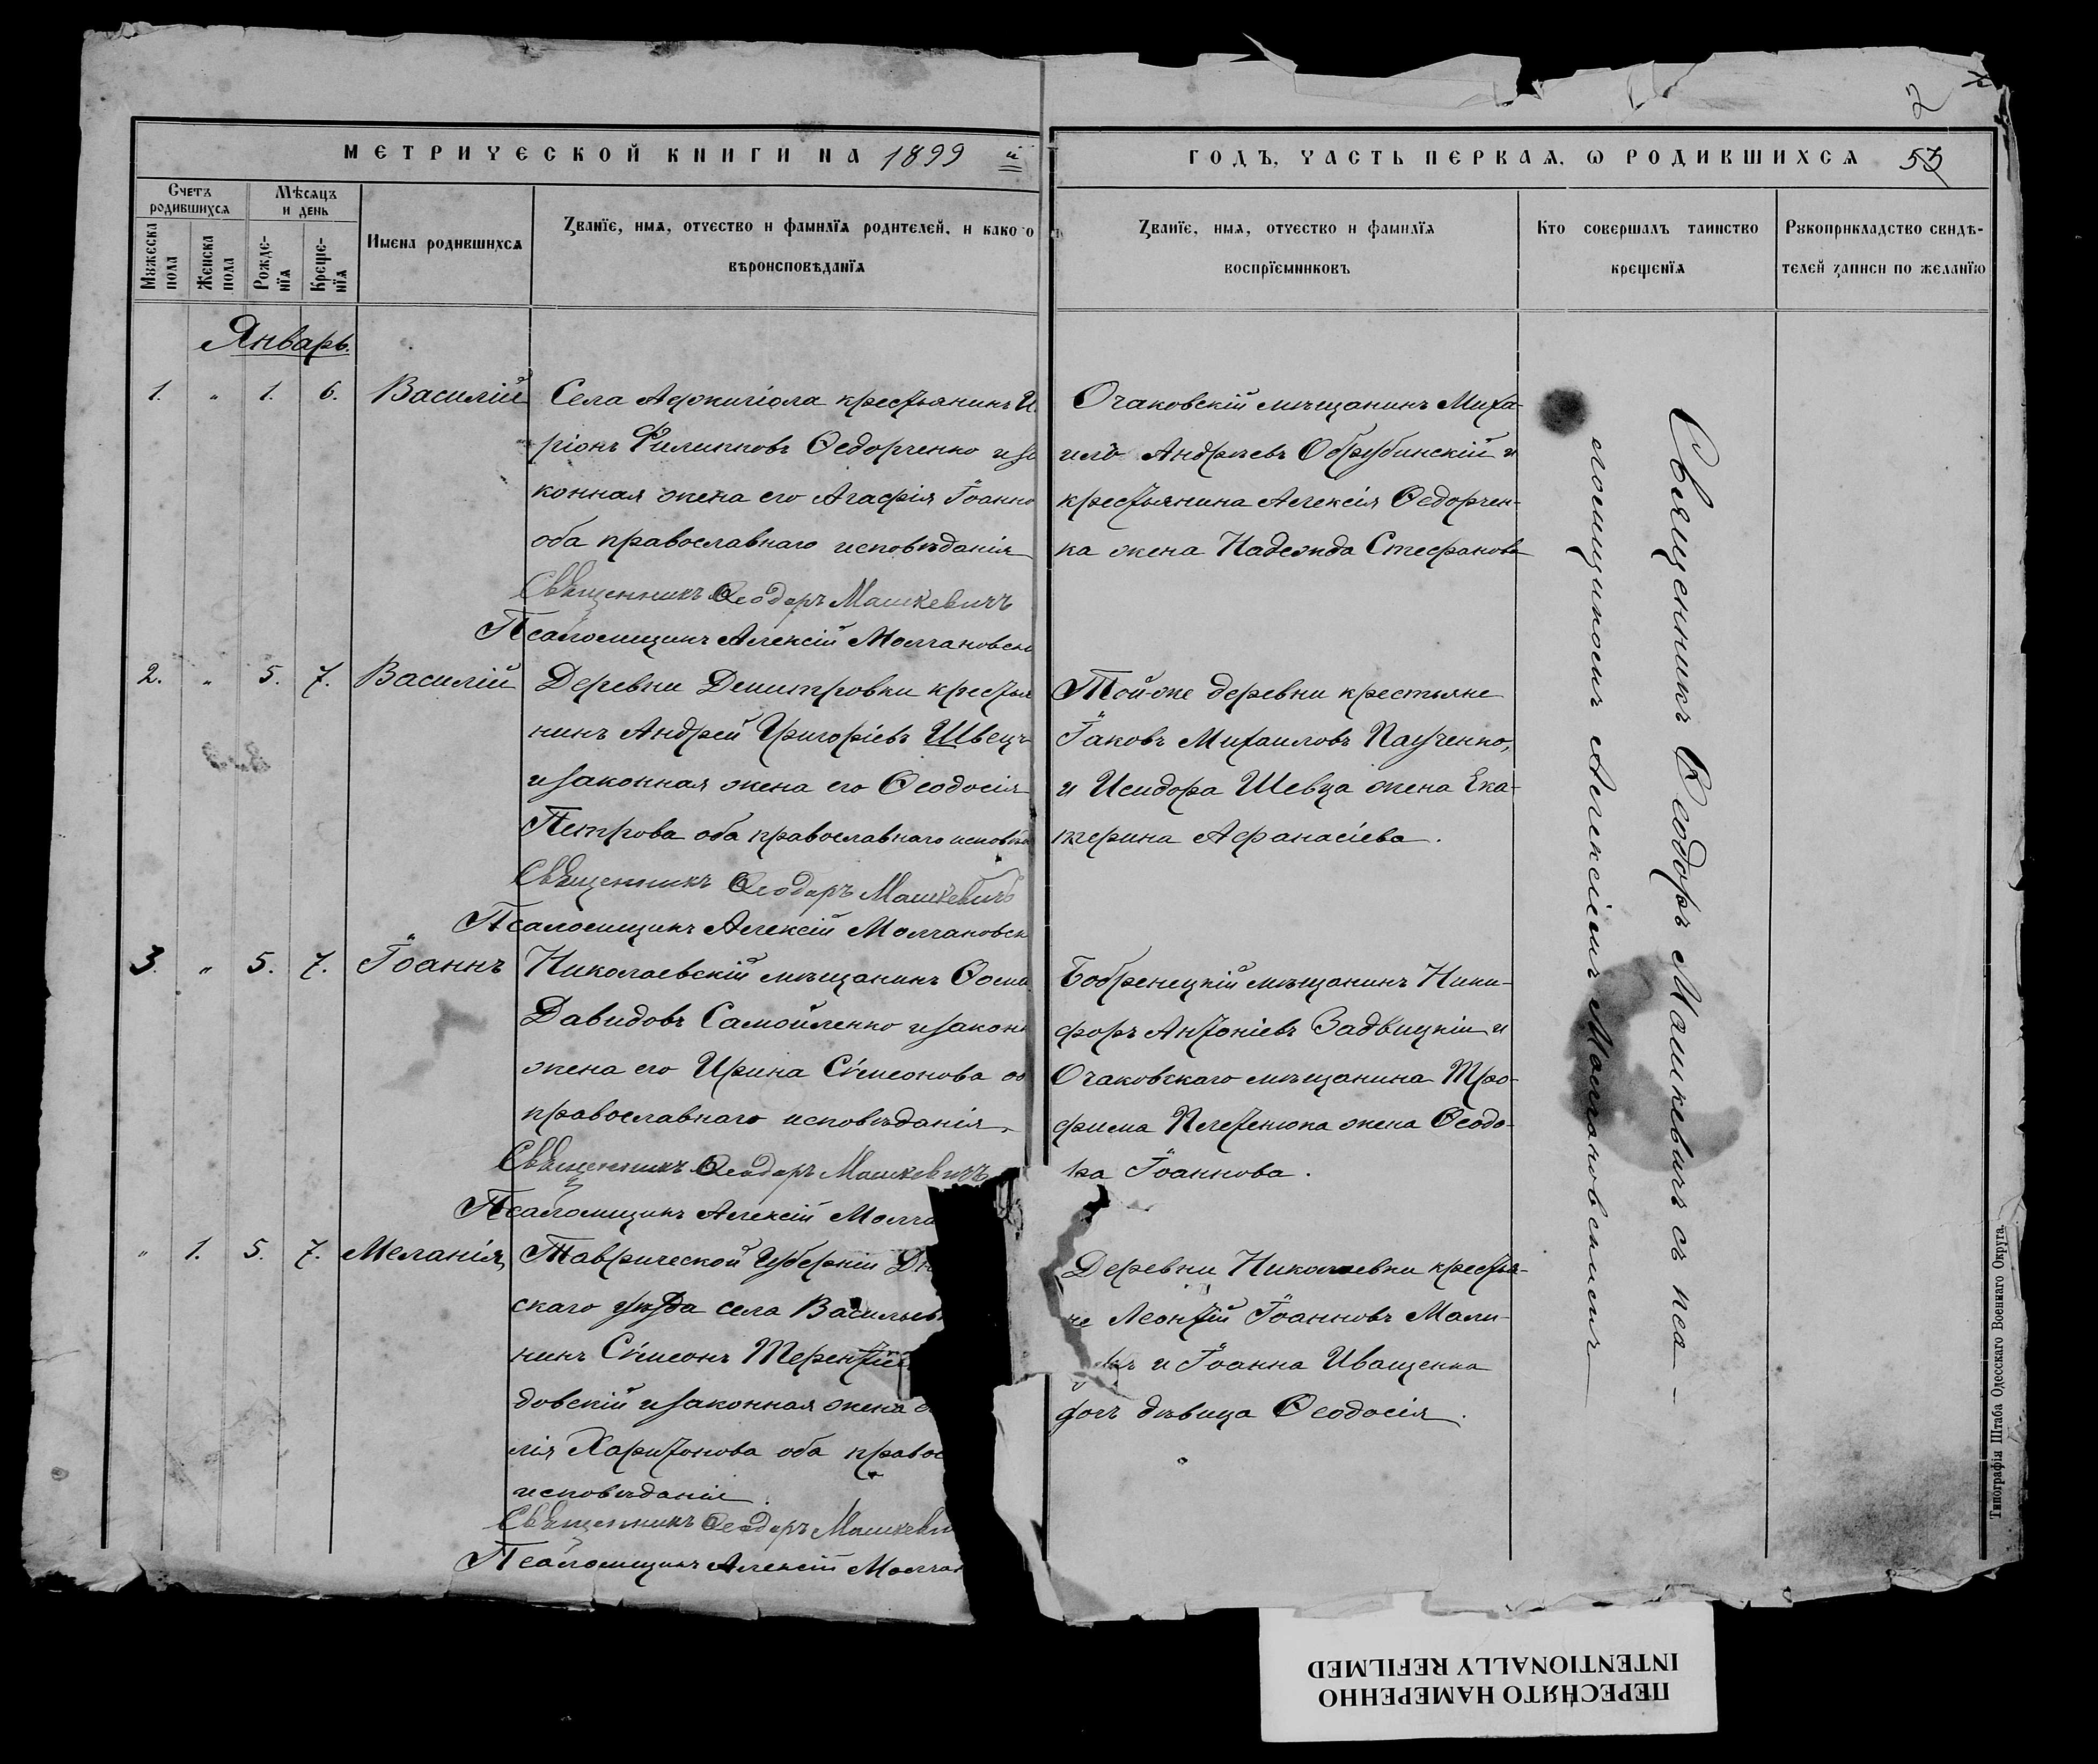 2
МЕТРИЧЕСКОЙ КНИГИ НА 1899 й
ГОДЪ, ЧАСТЬ ПЕРВАЯ, Ѡ РОДИВШИХСЯ 53
Счетъ родившихся
Мѣсяцъ и день
Мужеска пола
Женска пола
Рожде-нїя
Креще-нїя
Имена родившихся
Званїе, имя, отчество и фамилїя родителей, и какого
вѣроисповѣданїя
Званїе, имя, отчество и фамилїя
воспрїемниковъ
Кто совершалъ таинство
крещенїя
Рукоприкладство свидѣ-
телей записи по желанїю
Январь.
1. " 1. 6. Василій
Села Адживіола крестьянинъ И
ріонъ Филипповъ Ѳедорченко и за
конная жена его Агафія Іоанно
оба православнаго исповѣданія
Священникъ Ѳеодоръ Машкевичъ
Псаломщикъ Алексій Молчановск
Очаковскій мѣщанинъ Миха-
илъ Андреевъ Обрубинскій и
крестьянина Алексія Ѳедорчен-
ка жена Надежда Стефанова
2. " 5. 7. Василій
Деревни Димитровки крестья
нинъ Андрей Григоріевъ Швецъ
и законная жена его Ѳеодосія
Петрова оба православнаго исповѣда
Священникъ Ѳеодоръ Машкевичъ
Псаломщикъ Алексій Молчановск
Той-же деревни крестьяне
Іаковъ Михаиловъ Паученко,
и Исидора Шевца жена Ека-
терина Афанасіева.
3. " 5. 7. Іоаннъ
Николаевскій мѣщанинъ Ѳома
Давидовъ Самойленко и закон
жена его Ирина Сѵмеонова об
православнаго исповѣданія
Священникъ Ѳеодоръ Машкевичъ
Псаломщикъ Алексій Молча
Бобринецкій мѣщанинъ Ники-
форъ Антоніевъ Задвицкій и
Очаковскаго мѣщанина Тро-
фима жена Ѳеодо-
ра Іоаннова.
" 1. 5. 7. Меланія
Таврической Губерніи Дн
скаго уѣзда села Васильев
нинъ Сѵмеонъ Терентіе
довскій и законная жена
лія Харитонова оба правос
исповѣданія.
Священникъ Ѳеодоръ Машкеви
Псаломщикъ Алексій Молчан
Деревни Николаевки крестья-
не Леонтій Іоанновъ Мали-
къ и Іоанна Иващенка
дочь дѣвица Ѳеодосія.
Священникъ Ѳеодоръ Машкевичъ съ пса-
ломщикомъ Алексіемъ Молчановскимъ
Типографія Штаба Одесскаго Военнаго Округа.
ПЕРЕСНЯТО НАМЕРЕННО
INTENTIONALLY REFILMED